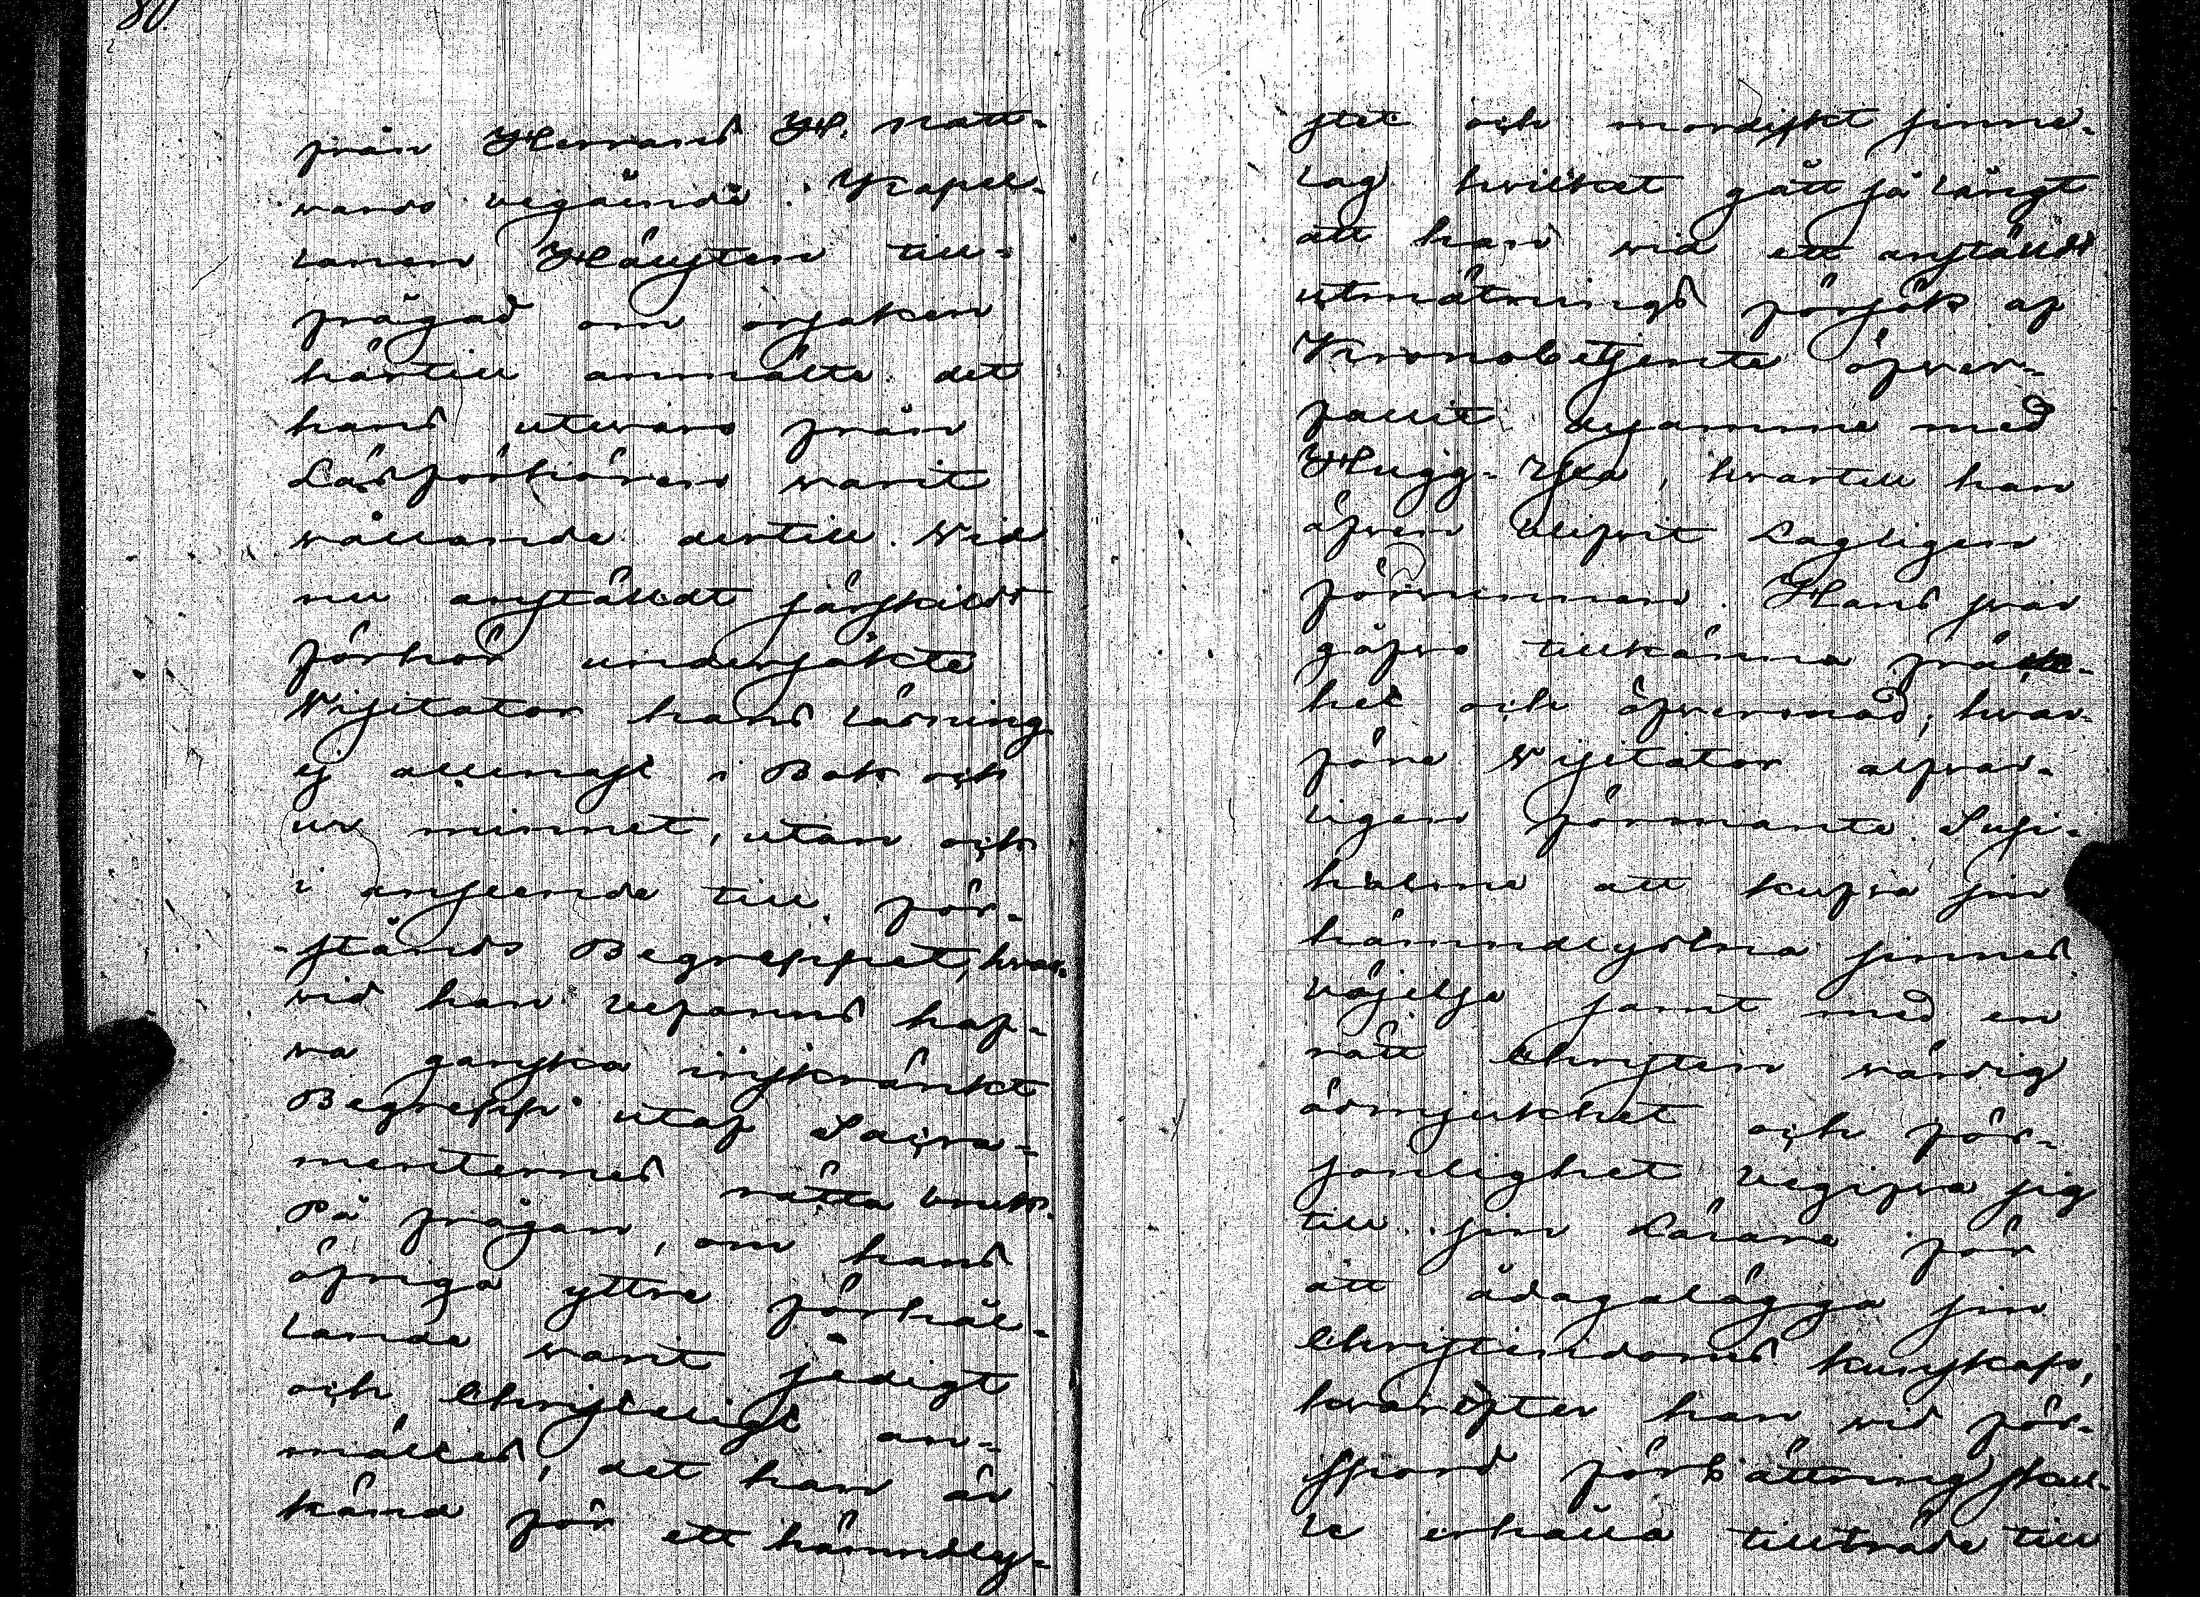 80.
från Herrans H. Natt-
vards begående. Kapel-
lanen Hällsten till-
frågad om orsaken
härtill anmälte det
hans utevaro från
Läsförhören varit
vållande dertill. Vid
nu anställdt särskildt
förhör undersökte
Visitator hans läsning
ej allenast i Bok och
ur minnet, utan och
i anseende till för-
ståndsBegreppet, hvar-
vid han befanns haf-
va ganska inskränkt
Begrepp utaf Sacra-
menternes rätta bruk.
På frågan, om hans
öfriga yttre förhål-
lande varit sedigt
och Christeligt an-
mältes, det han är
känd för ett hämndly-
stet och mordiskt sinne-
lag hvilket gått så långt
att han vid ett anställdt
utmätnings försök af
Kronobetjente öfver-
fallit desamme med
Hugg-Yxa, hvartill han
äfven blifvit Lagligen
förvunnen. Hans svar
gåfvo tillkänna fräck-
het och öfvermod, hvar-
före Visitator alfvar-
ligen förmante
att kufva sin
hämndlystna sinnes
böjelse samt med en
rätt Christen värdig
ödmjukhet och för-
sonlighet begifva sig
till sin Lärare för
att ådagalägga sin
Christendoms kunskap,
hvarefter han vid för-
spord förbättring skul-
le erhålla tillträde till